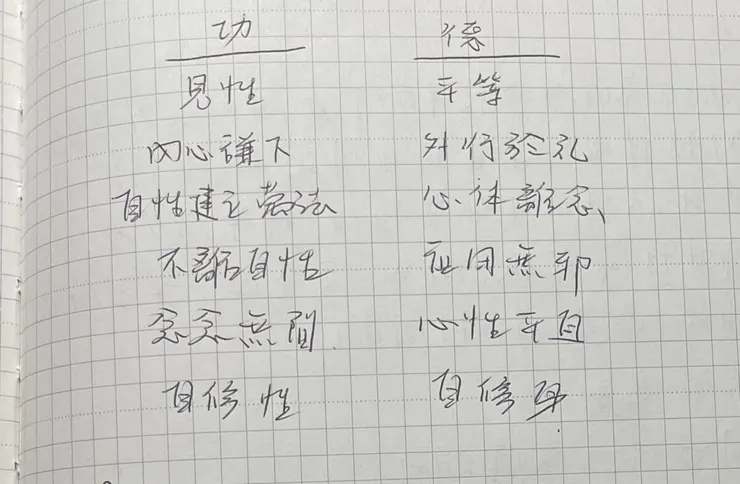 功 德
見性 平等
内心謙下 外行於礼
自性建立萬法 心体離念、
不離自性 应用無邪
念念無間. 心性平直
自修性 自修身.